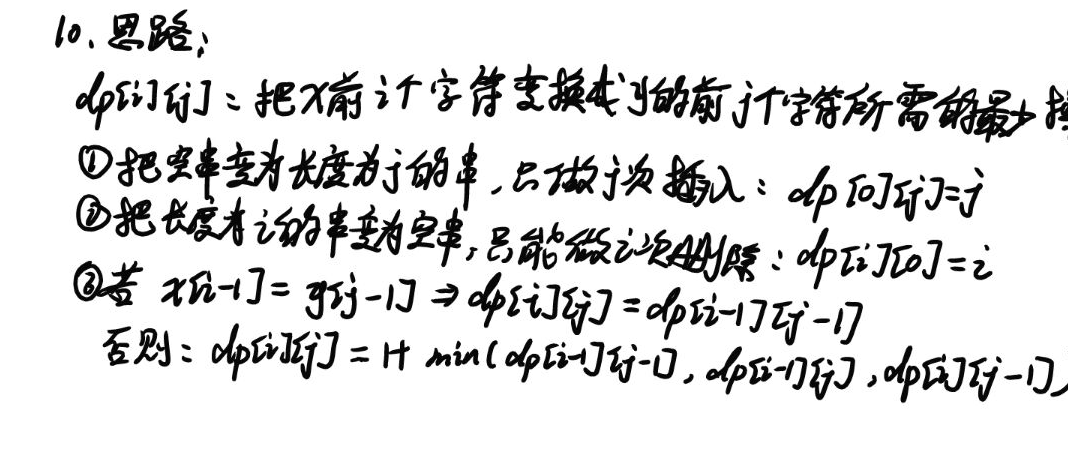 10. 思路:
dp[i][j]:把x前i个字符变换成y的前j个字符所需的最少
①把空串变为长度为j的串,只做j次插入:dp[0][j]=j
②把长度为i的串变为空串,只能做i次删除:dp[i][0]=i
③若 x[i-1]=y[j-1] ⇒ dp[i][j]=dp[i-1][j-1]
否则:dp[i][j]=1+min(dp[i-1][j-1],dp[i-1][j],dp[i][j-1])